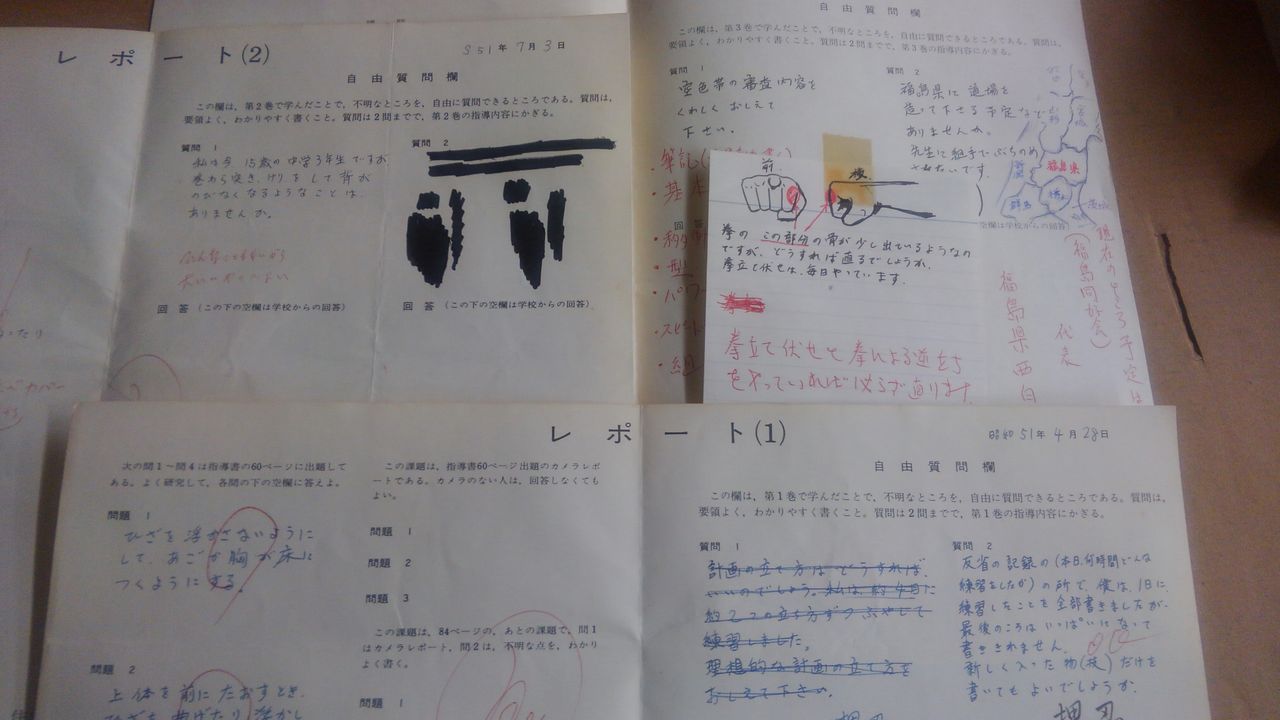 レポート(2)
S51年7月3日
自由質問欄
この欄は、第2巻で学んだことで、不明なところを、自由に質問できるところである。質問は、
要領よく、わかりやすく書くこと。質問は2問までで、第2巻の指導内容にかぎる。
質問 1
私は今、15歳の中学3年生ですが
巻から突き、けりをして背が
のびなくなるようなことは
ありませんか。
質問 2
回答(この下の空欄は学校からの回答)
回答(この下の空欄は学校からの回答)
自由質問欄
この欄は、第3巻で学んだことで、不明なところを、自由に質問できるところである。質問は、
要領よく、わかりやすく書くこと。質問は2問までで、第3巻の指導内容にかぎる。
質問 1
空色帯の審査内容を
くわしくおしえて
下さい。
質問 2
福島県に道場を
造って下さる予定など
ありませんか。
先生に組手でぶちのめ
されたいです。
福島県
宮城
群馬
・筆記
・基本
回答
・移動
・型
・パワー
・スピード
・組
空欄は学校からの回答)
現在のところ予定は
(福島同好会)
代表
福島県西白
前
横
拳のこの部分の骨が少し出ているようなの
ですが、どうすれば直るでしょうか。
拳立て伏せは、毎日やっています。
拳立て伏せと拳による逆立ち
をやっていれば必ず直ります
レポート(1)
昭和51年4月28日
次の問1~問4は指導書の60ページに出題して
ある。よく研究して、各問の下の空欄に答えよ。
問題 1
ひざを浮かさないように
して、あごか胸が床に
つくようにする。
問題 2
上体を前にたおすとき、
ひざを曲げたり浮かし
この課題は、指導書60ページ出題のカメラレポ
ートである。カメラのない人は、回答しなくても
よい。
問題 1
問題 2
問題 3
この課題は、84ページの、あとの課題で、問1
はカメラレポート、問2は、不明な点を、わかり
よく書く。
問題 1
自由質問欄
この欄は、第1巻で学んだことで、不明なところを、自由に質問できるところである。質問は、
要領よく、わかりやすく書くこと。質問は2問までで、第1巻の指導内容にかぎる。
質問 1
計画の立て方はどうすれば、
いいのでしょう。私は、約4日に
約2つの立ち方ずつふやして
練習しました。
理想的な計画の立て方を
おしえて下さい。
押忍
質問 2
反省の記録の(本日、何時間どんな
練習をしたか)の所で、僕は、1日に
練習したことを全部書きましたが、
最後のころはいっぱいになって
書ききれません。
新しく入った物(技)だけを
書いてもよいでしょうか。
押忍